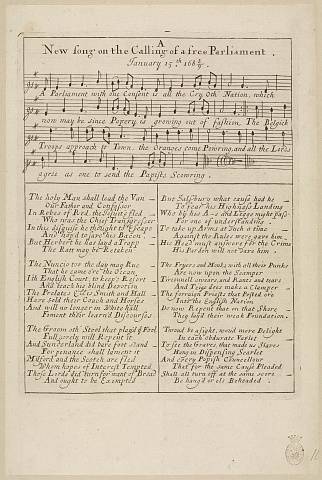 A
New song on the Calling of a free Parliament.
January 15th 168 8/9.
A Parliament with one Consent is all the Cry oth Nation, which
now may be since Popery is growing out of fashion, The Belgick
Troops approach to Town, the Oranges come Powring, and all the Lords
agree as one to send the Papists Scowring.
The holy Man shall lead the Van
Our Father and Confessor
In Robes of Red the Jesuite fled
Who was the Chief Transgressor
In this disguise he thought to Escape
And hop'd to save his Bacon
But Herbert he has laid a Trapp
The Ratt may be Retaken
The Nuncio too the day may Rue
That he came o're the Ocean
Ith English Court to keep Resort
And teach his blind Devotion
The Prelates Ellis Smith and Hall
Have sold their Coach and Horses
And will no longer in White hall
Foment their learned Discourses
The Groom oth Stool that play'd the Fool
Full sorely will Repent it
And Sunderland did tare foot stand
For penance shall lament it
Milford and the Scotch are fled
Whom hopes of Interest Tempted
These Lords did turn for want of Bread
And ought to be Exempted
But Salsbury what cause had he
To fear his Highness Landing
Who by his and Legge might pass
For one of understanding
To take up Arms at Such a time
Against the Rules were given him
His Head must answere for the Crime
His Pardon will not save him
The Fryers and Monks with all their Punks
Are now upon the Scamper
Tirconnell swears and Rants and tears
And Tyge does make a Clamper
The foreign Priests that Posted ore
Into the English Nation
Do now Repent that on that Shore
They layd their weak Foundation.
Twoud be a sight, woud more Delight
In each obdurate Varlet
To see the Graves, that made us Slaves
Hang in Dispensing Scarlet
And every Popish Chancellour
That for the same Cause Pleaded
Shall all turn off at the same score
Be hang'd or els Beheaded.